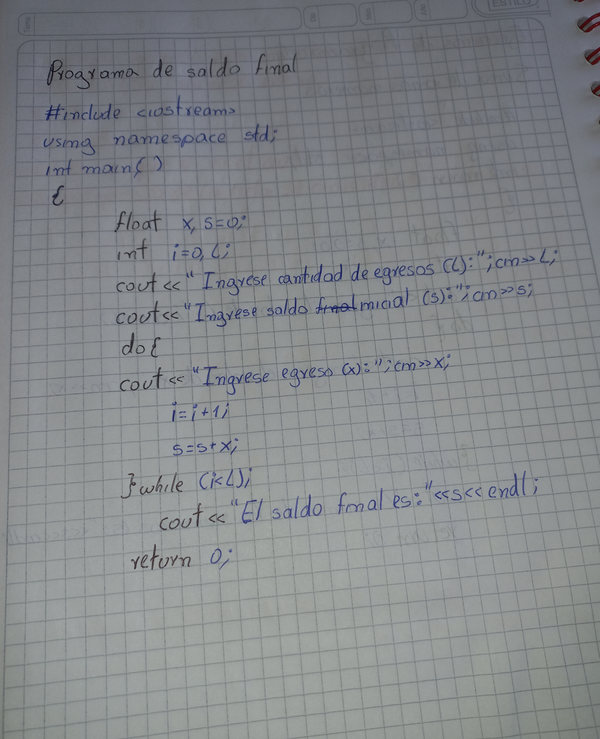 Programa de saldo final
#include <iostream>
using namespace std;
int main()
{
float x, s=0;
int i=0, L;
cout<<"Ingrese cantidad de egresos (L):";cin>>L;
cout<<"Ingrese saldo final inicial (s):";cin>>s;
do{
cout<<"Ingrese egreso (x):";cin>>x;
i=i+1;
s=s+x;
}while (i<L);
cout<<"El saldo final es:"<<s<<endl;
return 0;